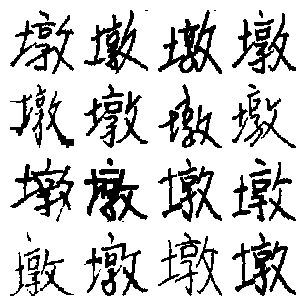 墩墩墩墩
墩墩墩墩
墩墩墩墩
墩墩墩墩